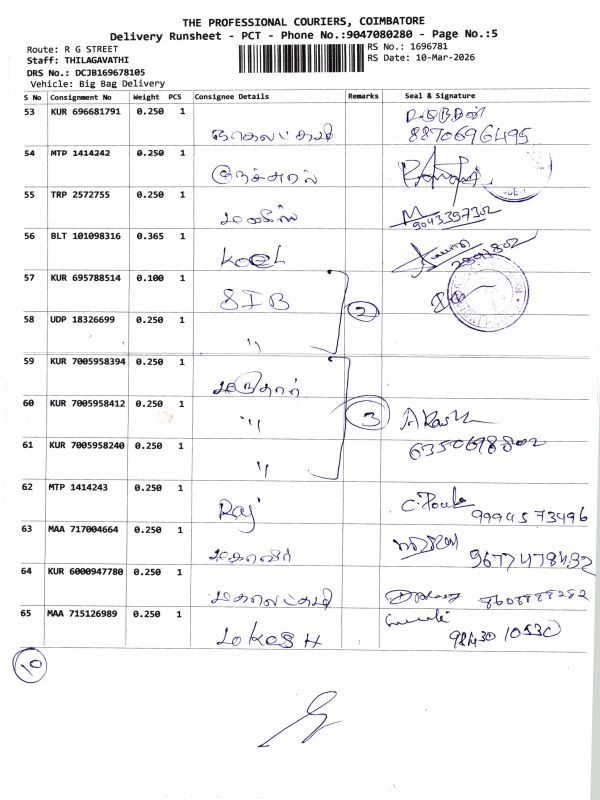 THE PROFESSIONAL COURIERS, COIMBATORE
Delivery Runsheet - PCT - Phone No.:9047080280 - Page No.:5
Route: R G STREET
RS No.: 1696781
Staff: THILAGAVATHI
RS Date: 10-Mar-2026
DRS No.: DCJB169678105
Vehicle: Big Bag Delivery
S No Consignment No Weight PCS Consignee Details Remarks Seal & Signature
53 KUR 696681791 0.250 1
8870696495
54 MTP 1414242 0.250 1
55 TRP 2572755 0.250 1
9043397302
56 BLT 101098316 0.365 1
57 KUR 695788514 0.100 1 SIB
2
58 UDP 18326699 0.250 1 "
59 KUR 7005958394 0.250 1
60 KUR 7005958412 0.250 1 " 3
61 KUR 7005958240 0.250 1 " 6350698802
62 MTP 1414243 0.250 1 Raj 9994573496
63 MAA 717004664 0.250 1 9677478432
64 KUR 6000947780 0.250 1
65 MAA 715126989 0.250 1 LOKESH 98430 10530
10